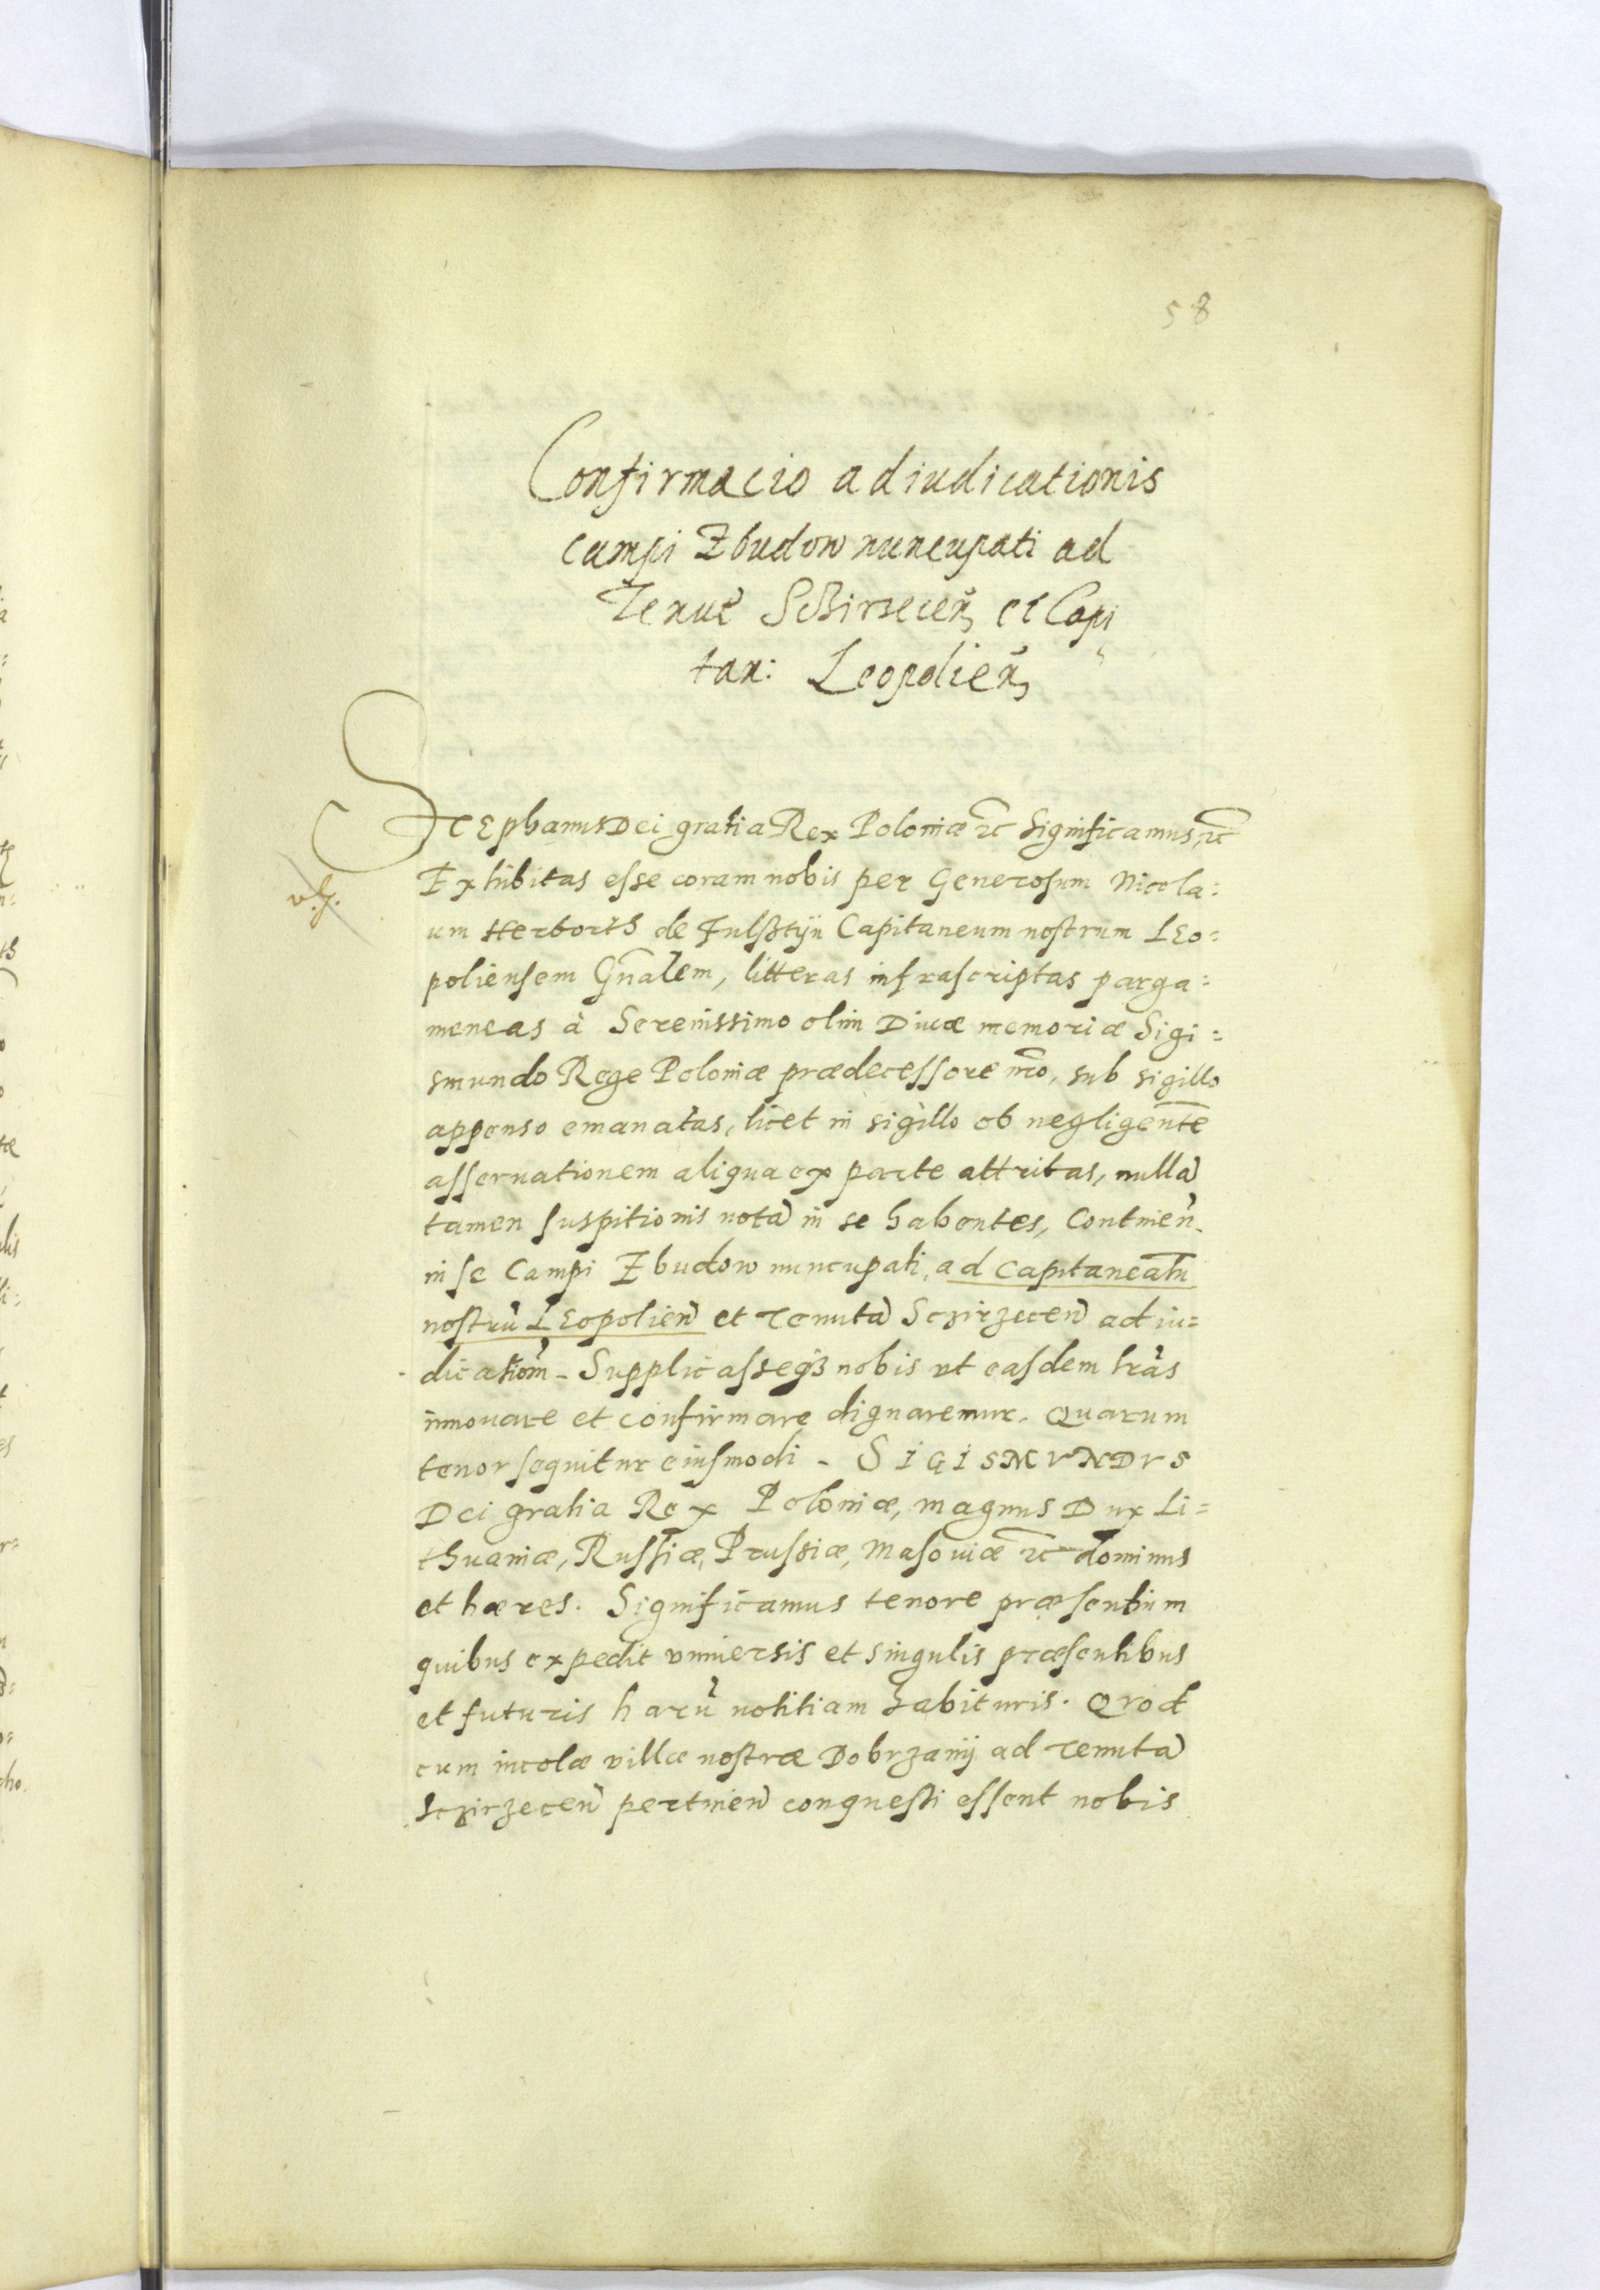 58
Confirmacio adiudicationis
campi Zbudow nuncupati ad
Tenut̃ Sczirzecen̄ et Capi
tan: Leopolien̄
StEphanus Dei gratia Rex Poloniæ etc Significamus, etc
Exhibitas esse coram nobis per Generosum Nicola=
um Herborth de Fulsztijn Capitaneum nostrum LEo=
poliensem Gn̄alem, litteras infrascriptas parga=
meneas à Serenissimo olim Diuæ memoriæ Sigi=
smundo Rege Poloniæ prædecessore nr̄o, sub sigillo
appenso emanatas, licet in sigillo ob negligente̅
asseruationem aliqua ex parte attritas, nulla̅
tamen suspitionis nota̅ in se habentes, Continen̄
in se Campi Zbudow nuncupati, ad Capitaneatu̅
nostru̅ LEopolien̄ et Tenuta̅ Sczirzecen̄ adiu=
dicatiom̄ - Supplicasseq̃ nobis vt easdem lr̄as
innouare et confirmare dignaremur. Quarum
tenor sequitur eiusmodi - SIGISMVNDVS
Dei gratia Rex Poloniæ, magnus Dux Li=
thuaniæ, Russiæ, Prussiæ, Masouiæ etc dominus
et hæres. Significamus tenore præsentium
quibus expedit vniuersis et singulis præsentibus
et futuris haru̅ notitiam habituris. Quod
cum incolæ villæ nostræ Dobrzanij ad Tenuta̅
Sczirzecen̄ pertinen̄ conquesti essent nobis